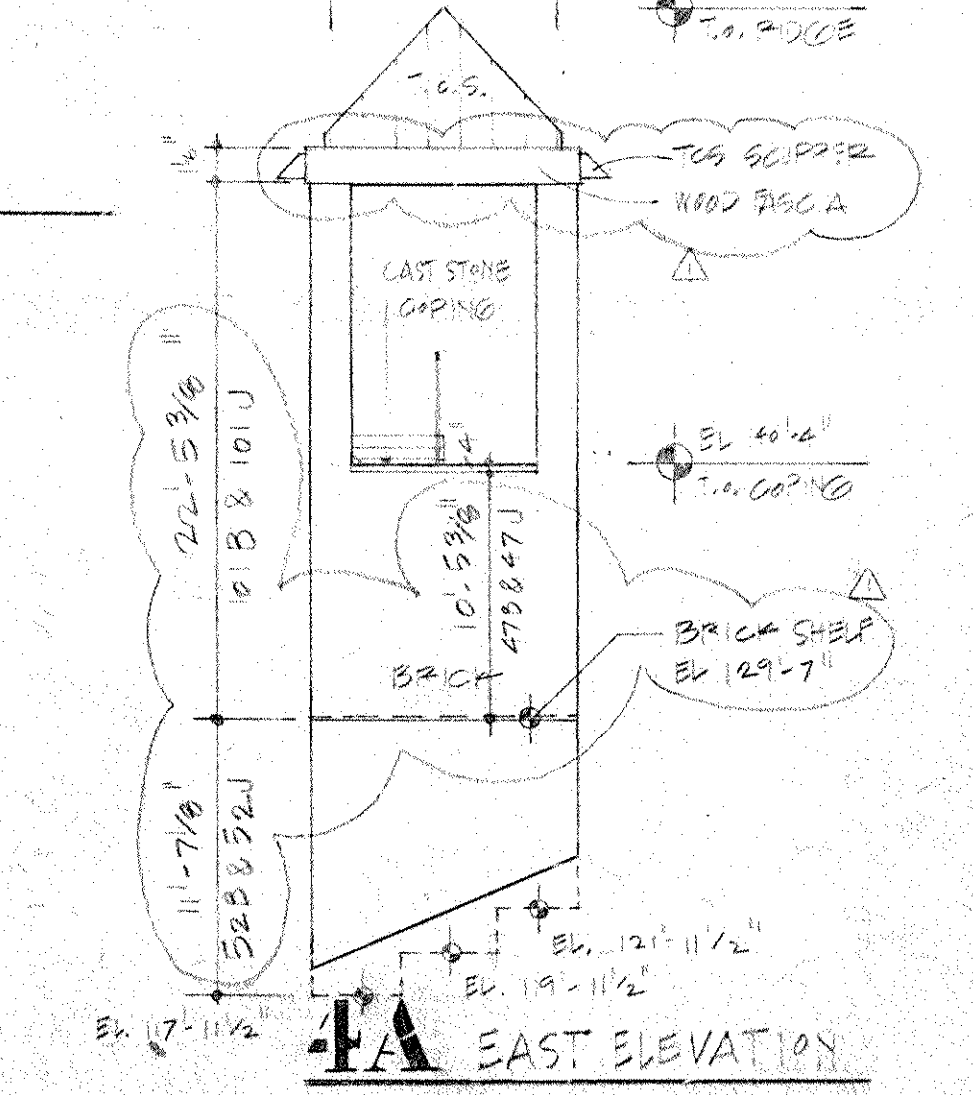 T.O. RIDGE
T.C.S.
TCS SCUPPER
WOOD FASCIA
1
CAST STONE
COPING
22'-5 3/8"
101B & 101J
4"
EL 140'-4"
T.O. COPING
10'-5 3/8"
47B & 47J
1
BRICK SHELF
EL 129'-7"
BRICK
11'-7 1/8"
52B & 52J
EL. 121'-11 1/2"
EL. 119'-11 1/2"
EL. 117'-11 1/2"
4A EAST ELEVATION